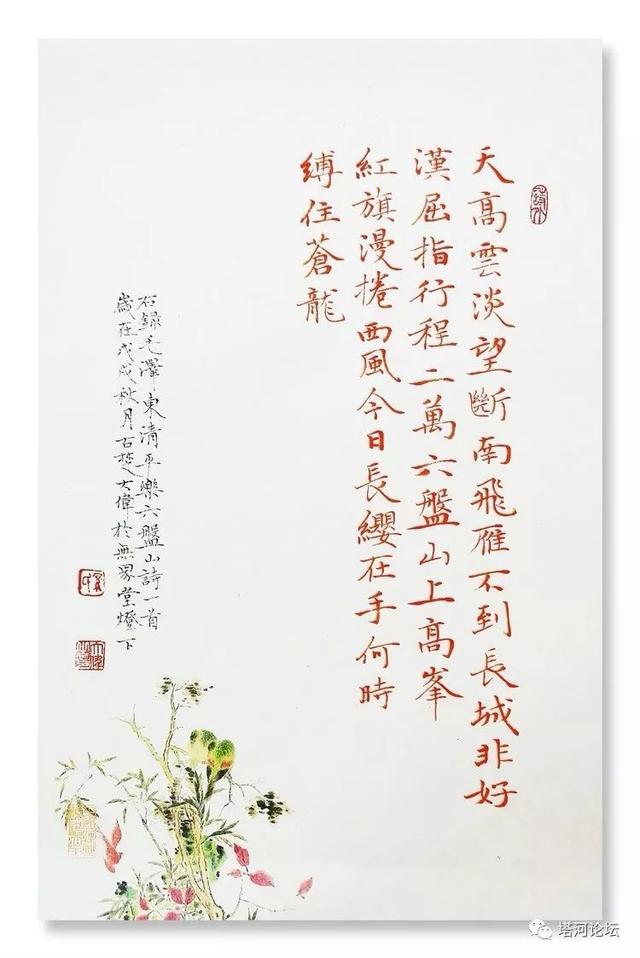 天高雲淡望斷南飛雁不到長城非好
漢屈指行程二萬六盤山上高峯
紅旗漫捲西風今日長纓在手何時
縛住蒼龍
右録毛澤東清平樂六盤山詩一首
歲在戊戌秋月古楚大偉於無界堂燈下
塔河论坛